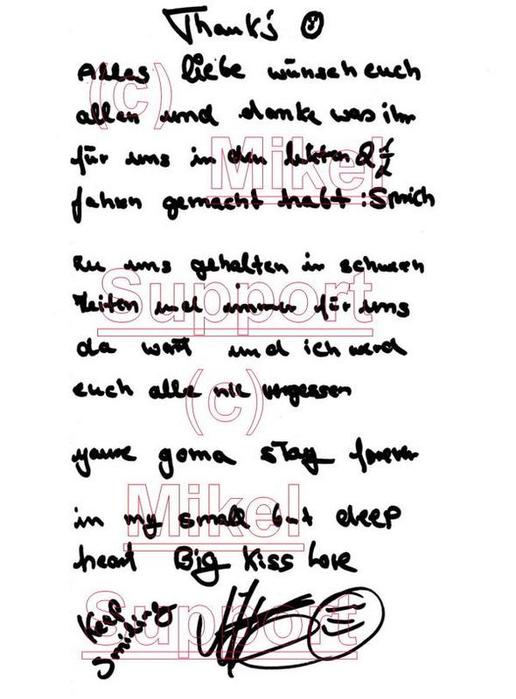 Thanks ☺
Alles liebe wünsch euch
allen und danke was ihr
für uns in den letzten 2 1/2
Jahren gemacht habt : Sprich
Zu uns gehalten in schweren
Zeiten und immer für uns
da wart und ich werd
euch alle nie vergessen
youre gonna stay forever
in my small but deep
heart Big Kiss Love
Keep
smiling
(c)
Mikel
Support
(c)
Mikel
Support